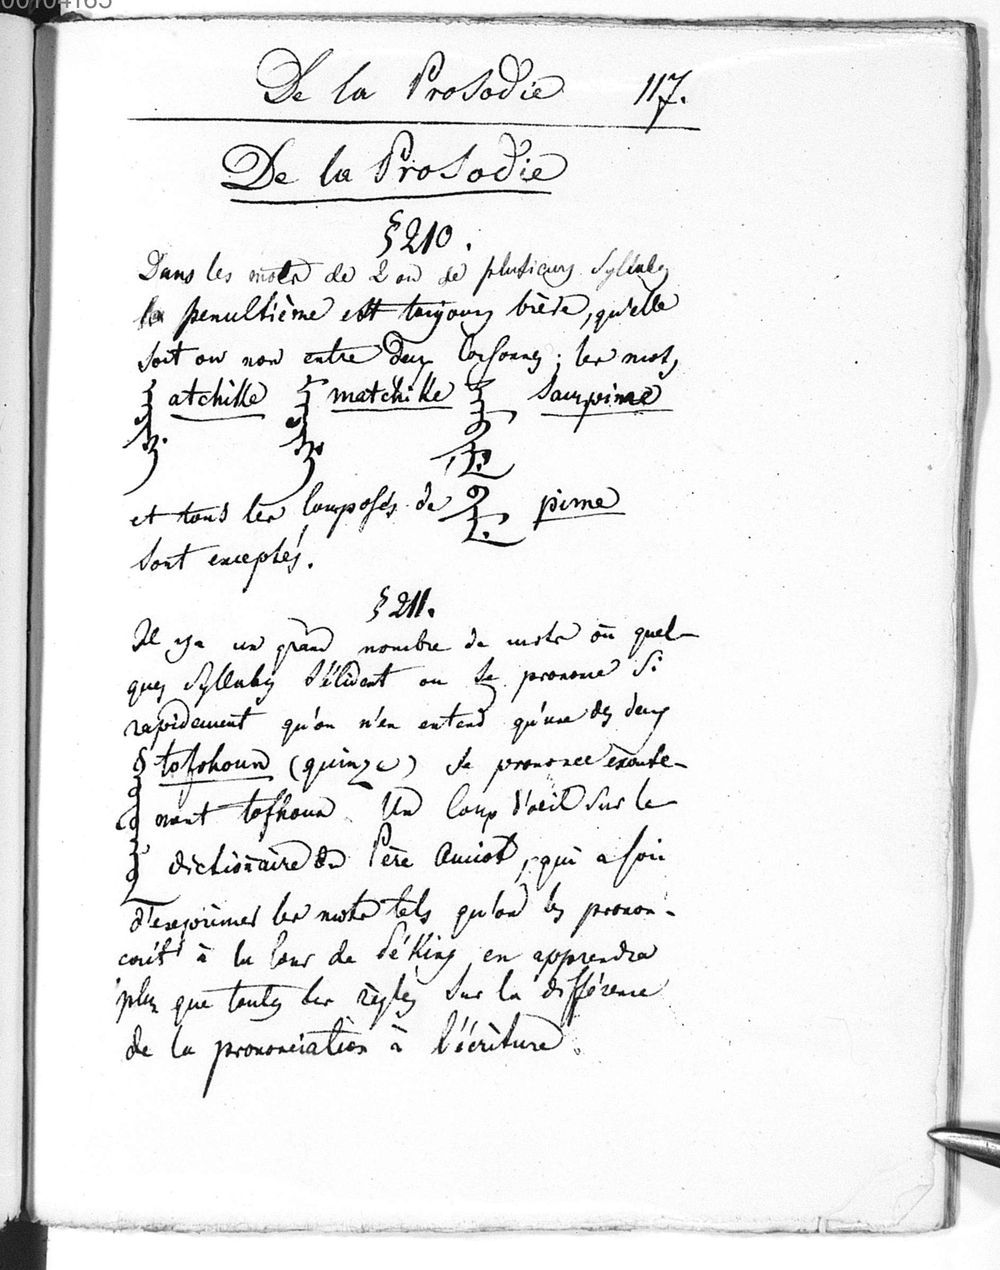 00104165
De la Prosodie 117.
De la Prosodie
§ 210.
Dans les mots de 2 ou de plusieurs Syllabes
la penultième est toujours brève, qu'elle
soit ou non entre deux Consonnes; les mots
atchille matchille
et tous les composés de pime
sont exceptés.
§ 211.
Il y a un grand nombre de mots où quel-
ques Syllabes s'élident ou se prononce si
rapidement qu'on n'en entend qu'une des deux
tofohoun (quinze) se prononce
nant tofhoun Un Coup d'oeil sur le
dictionaire du Père Amiot, qui a soin
d'exprimer les mots tels qu'on les pronon-
çait à la Cour de Péking en apprendra
plus que toutes les règles sur la différence
de la prononciation à l'écriture.